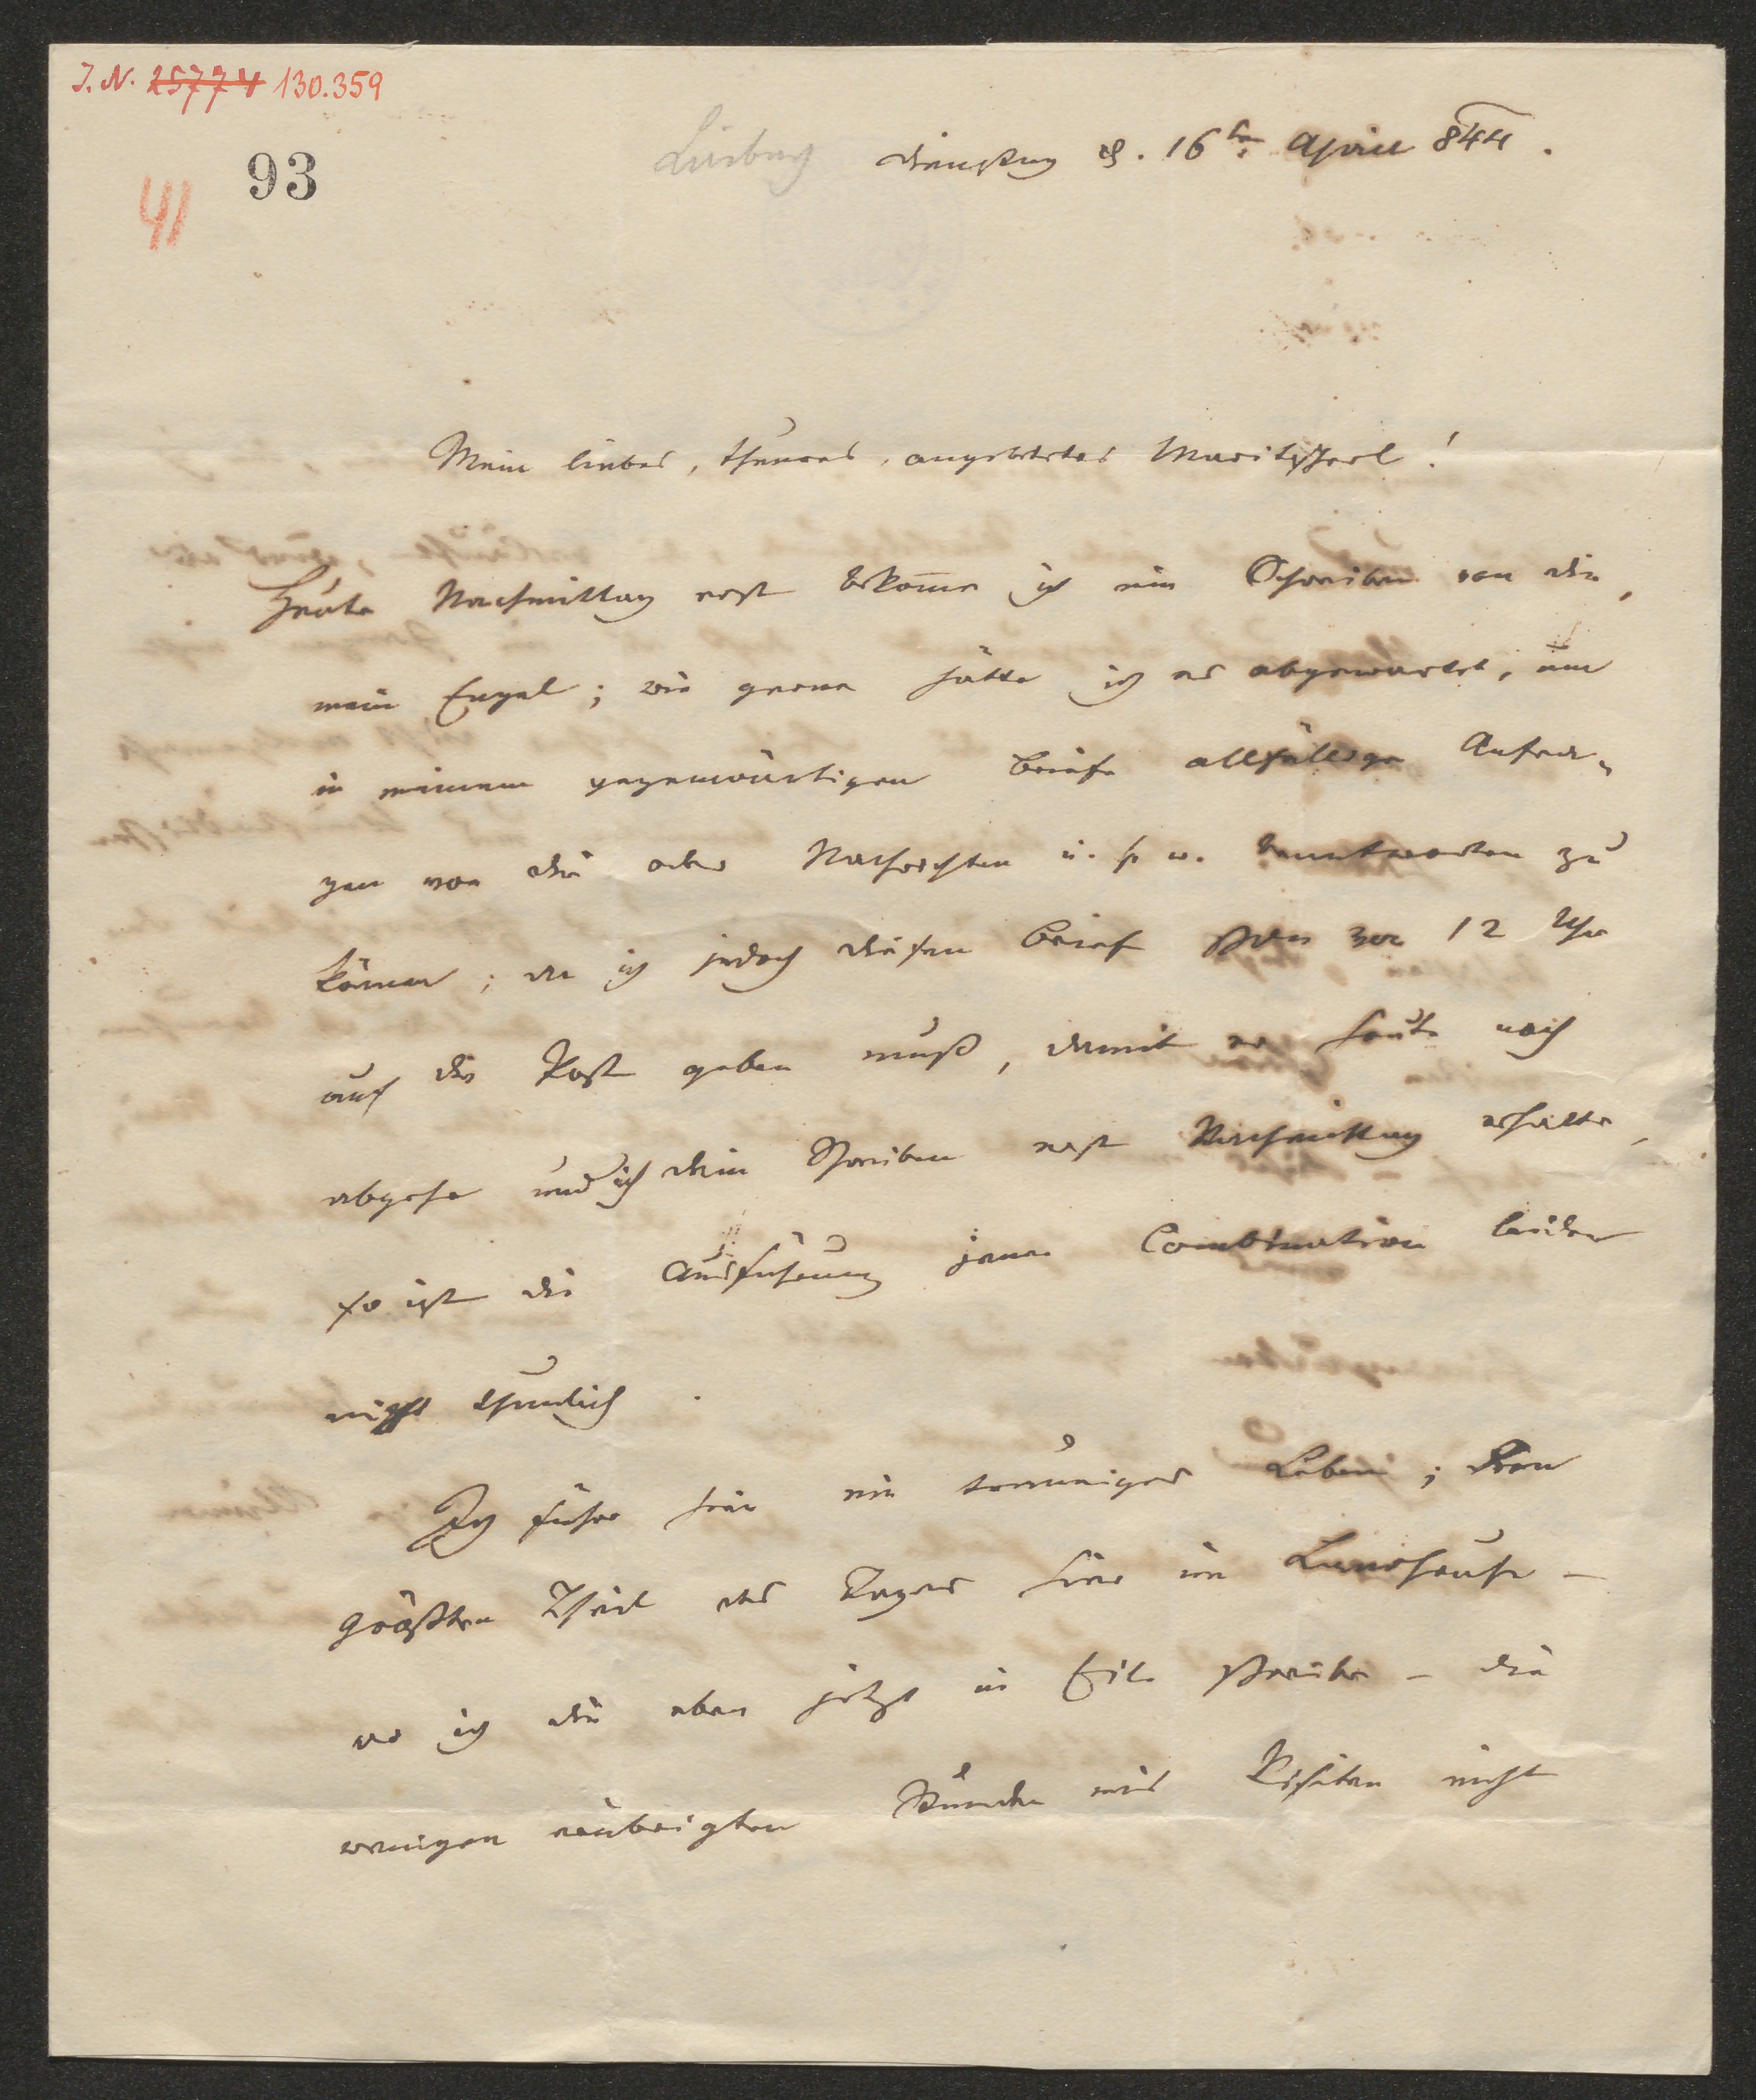 I. N. 25774 130.359
93
41
Dienstag d. 16ten April 844.
Mein liebes, theures, angebetetes Maritscherl!
Heute Nachmittag erst bekome ich ein Schreiben von dir,
mein Engel; wie gerne hätte ich es abgewartet, um
in meinem gegenwärtigen Briefe allfällige Anfra-
gen von dir oder Nachrichten u. s. w. beantworten zu
können; da ich jedoch diesen Brief schon vor 12 Uhr
auf die Post geben muß, damit er heute noch
abgehe und ich dein Schreiben erst Nachmittag erhalte,
so ist die Ausführung jener Combination leider
nicht thunlich.
Ich führe hier ein trauriges Leben; den
größten Theil des Tages hier im Landhause –
wo ich dir eben jetzt in Eile schreibe – die
wenigen erübrigten Stunden mit Visiten nicht